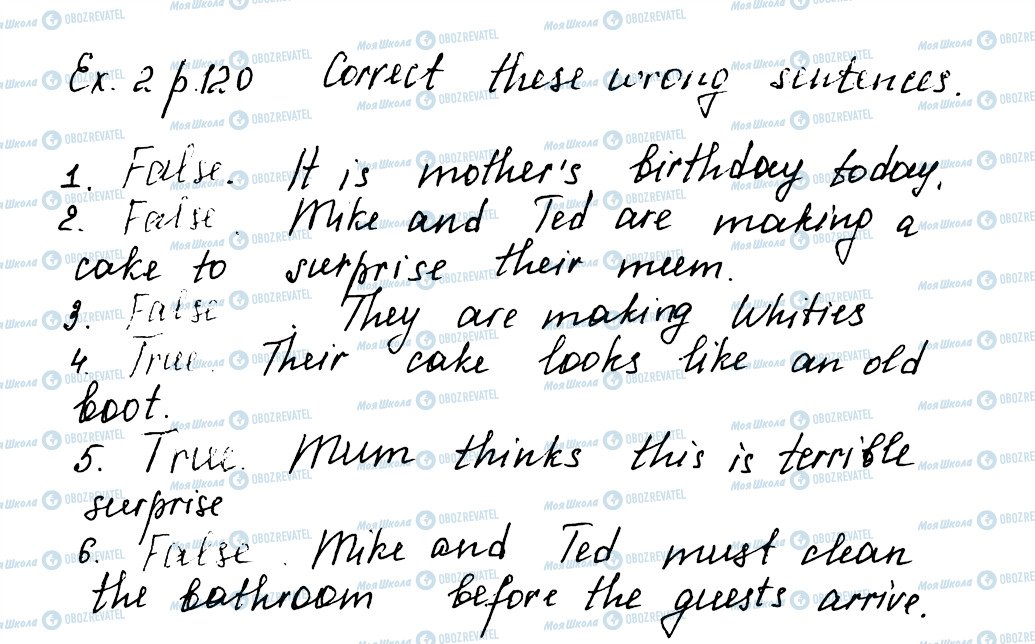 Ex. 2 p.120 Correct these wrong sentences.
1. False. It is mother's birthday today.
2. False. Mike and Ted are making a
cake to surprise their mum.
3. False. They are making Whities
4. True. Their cake looks like an old
boot.
5. True. Mum thinks this is terrible
surprise
6. False. Mike and Ted must clean
the bathroom before the guests arrive.